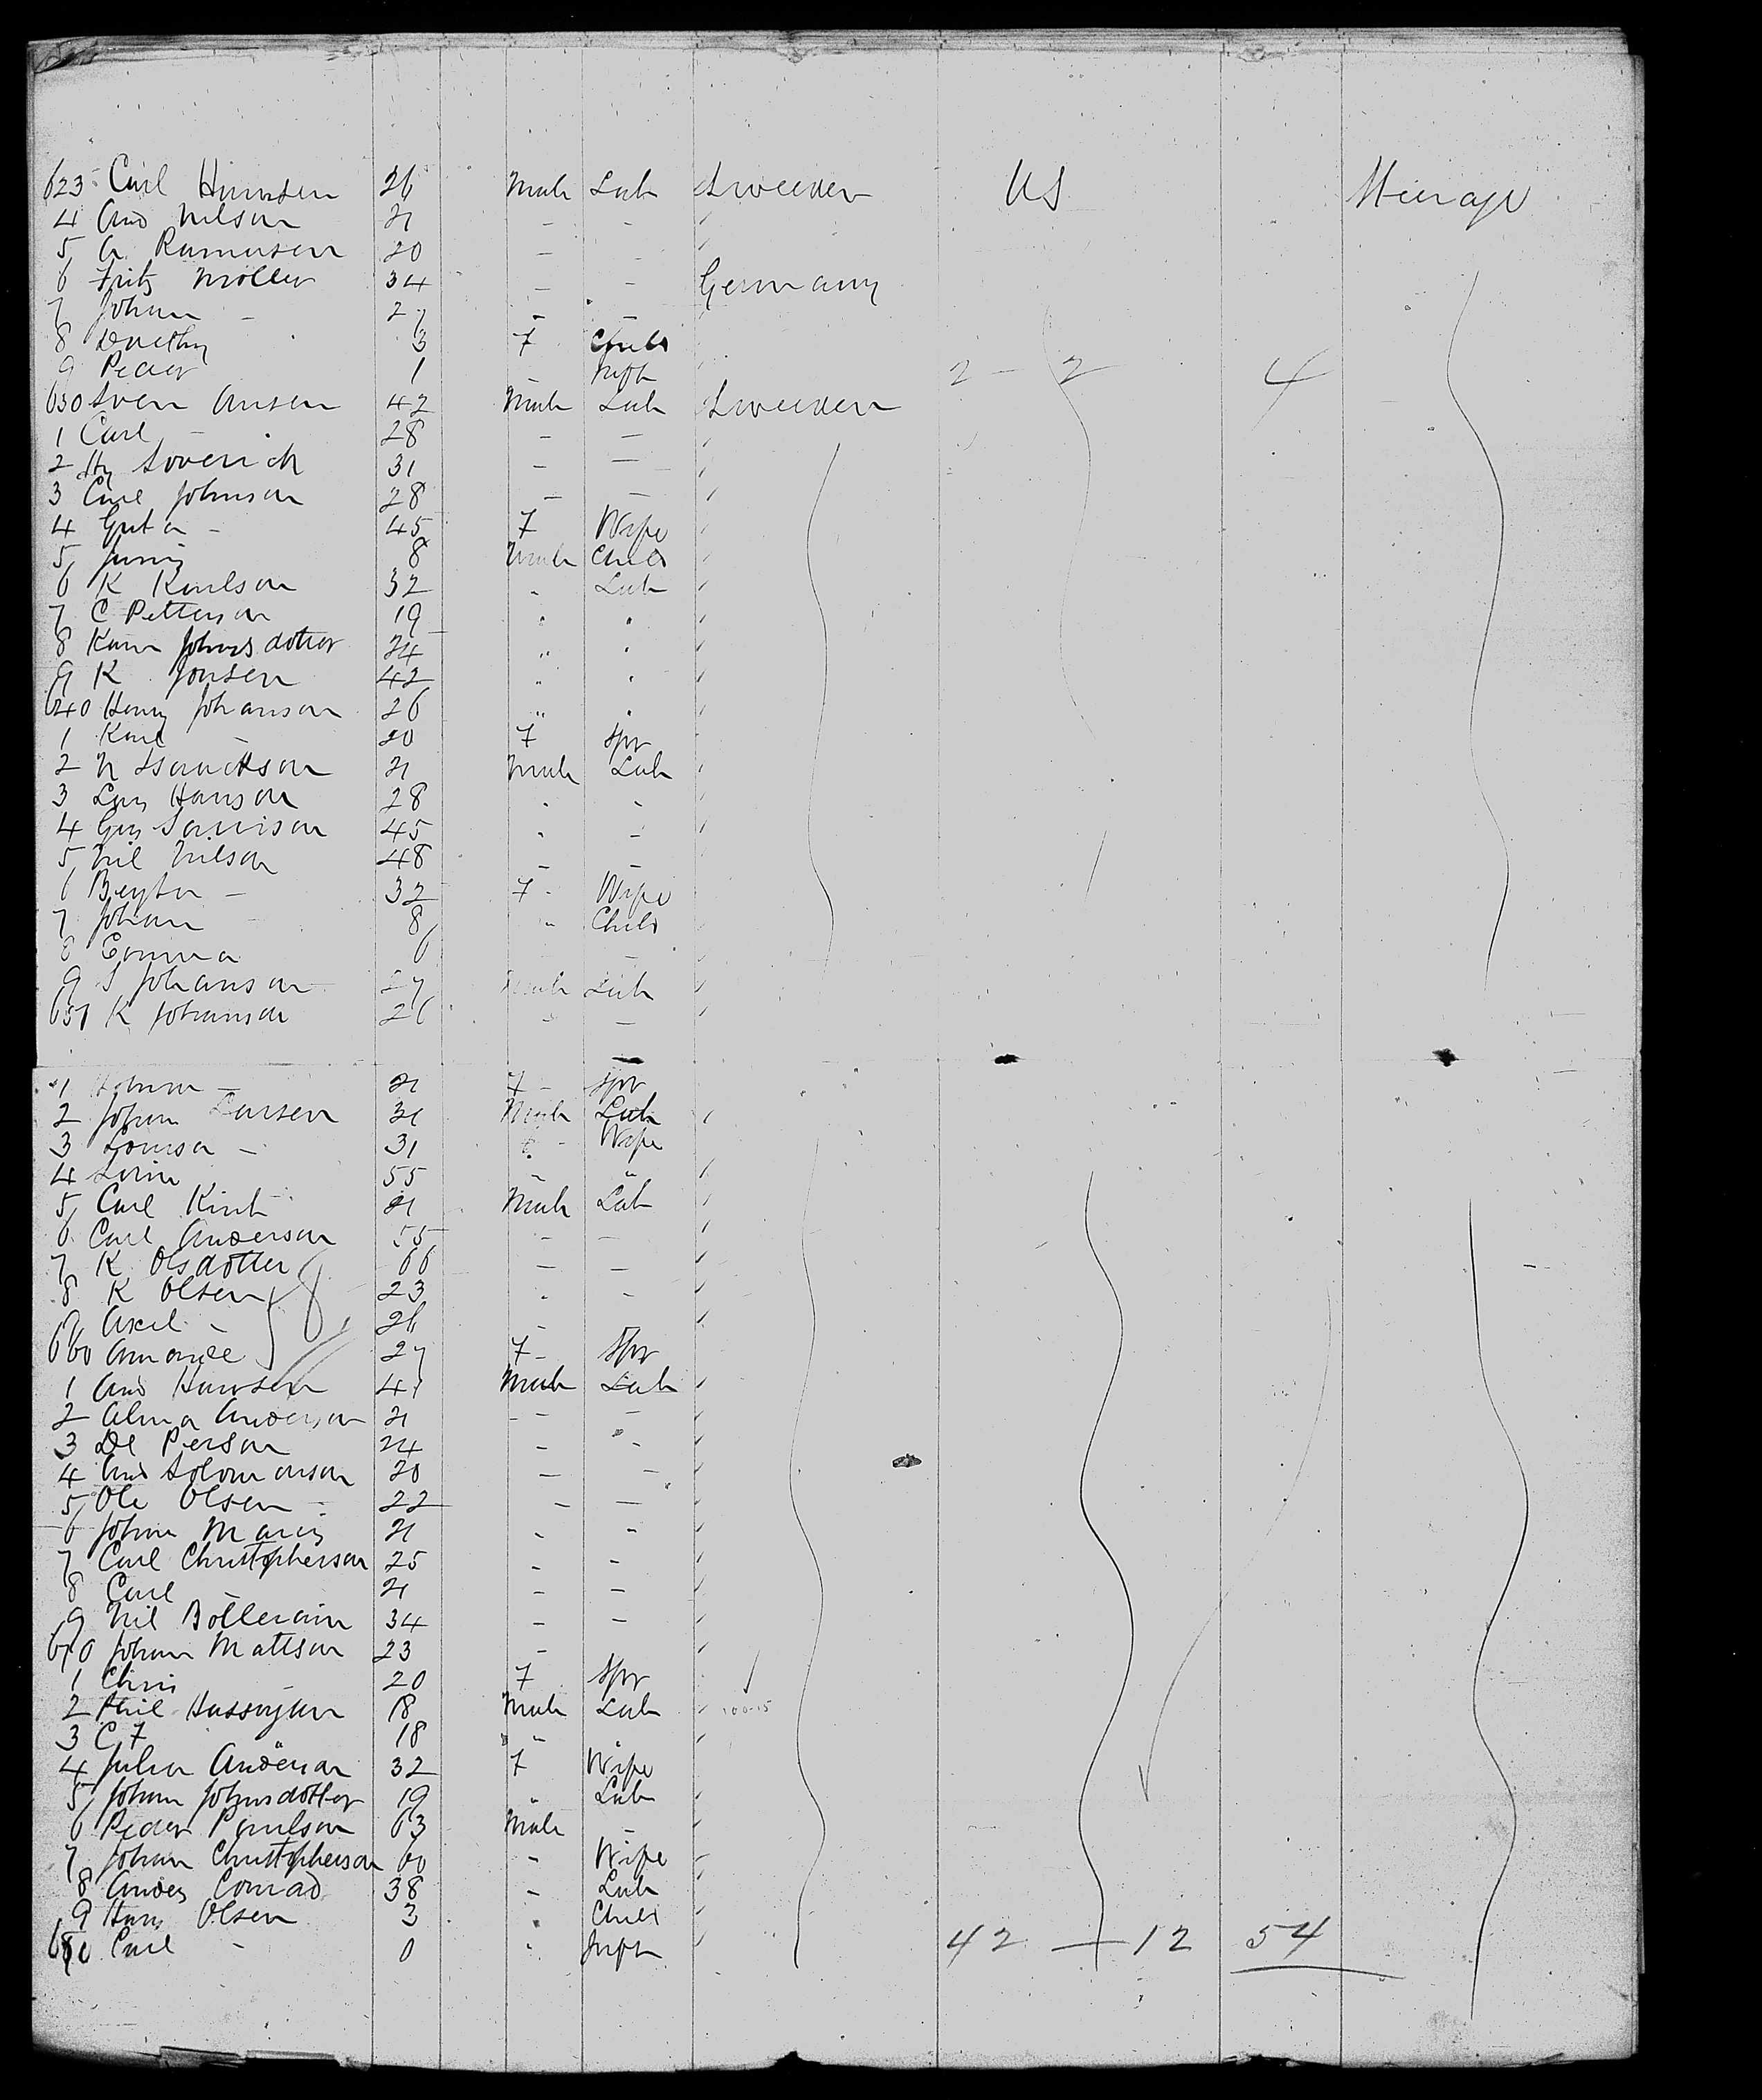 623 Carl Hansen 26 Male Lab Sweeden US Steerage
4 And Nilson 21 - -
5 A. Ramusen 20 -
6 Fritz Moller 34 - - Germany
7 Johan - 27 - -
8 Dorothy 3 F Child
9 Peder 1 - Inft 2 - 2 4
630 Sven Ansen 42 Male Lab Sweeden
1 Carl - 28 - -
2 Hy 31 - -
3 Carl Johnson 28 - -
4 - 45 F Wife
5 8 Male Child
6 K Karlson 32 " Lab
7 C Petterson 19 " "
8 Karn Johnsdotter 24 " "
9 K Jonsen 42 " "
640 Henry Johanson 26 " "
1 Karl - 20 F Spr
2 N Isackson 21 Male Lab
3 Lars Hanson 28 " "
4 45 " -
5 Nil Nilson 48 - -
6 - 32 F - Wife
7 Johan - 8 " Child
8 Emma 6 - -
9 S Johanson 27 Male Lab
651 K Johanson 26 - -
1 Johan - 21 F - Spr
2 Johan Larsen 31 Male Lab
3 Louisa - 31 " - Wife
4 55 " "
5 Carl 21 Male Lab
6 Carl Anderson 55 - -
7 K Olsdotter 66 - -
8 K Olsen 23 " -
9 Axel - 26 -
660 27 F - Spr
1 And Hansen 41 Male Lab
2 Alma Anderson 21 - -
3 Person 24 - -
4 And Solomonson 20 - -
5 Ole Olsen 22 - -
6 Johan 21 - -
7 Carl Christopherson 25 - -
8 Carl - 21 - -
9 Nil 34 - -
670 Johan Mattson 23 -
1 Chris - 20 F Spr
2 18 Male Lab
3 C F 18 " "
4 Julia Anderson 32 F Wife
5 Johan Johnsdotter 19 " Lab
6 Peder Paulson 63 Male -
7 Johan Christopherson 60 - Wife
8 Anders Conrad 38 - Lab
9 Hans Olsen 3 " Child
680 Carl - 0 " Inft 42 - 12 54